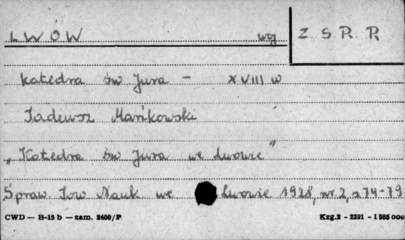 LWÓW wg Z. S. R. R
katedra św Jura - XVIII w
Tadeusz Mańkowski
„Katedra św Jura we Lwowie"
Spraw Tow Nauk we Lwowie 1928, nr 2, s 74-79
CWD — B-15 b — zam. 2400/P Kzg.2 - 2291 - 1 585 000